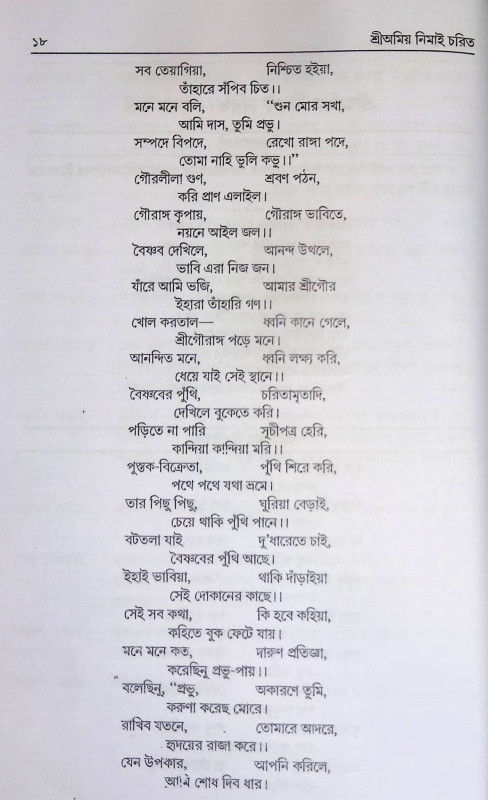 ১৮ শ্রীঅমিয় নিমাই চরিত
সব তেয়াগিয়া, নিশ্চিত হইয়া,
তাঁহারে সঁপিব চিত।।
মনে মনে বলি, “শুন মোর সখা,
আমি দাস, তুমি প্রভু।
সম্পদে বিপদে, রেখো রাঙ্গা পদে,
তোমা নাহি ভুলি কভু।।”
গৌরলীলা গুণ, শ্রবণ পঠন,
করি প্রাণ এলাইল।
গৌরাঙ্গ কৃপায়, গৌরাঙ্গ ভাবিতে,
নয়নে আইল জল।।
বৈষ্ণব দেখিলে, আনন্দ উথলে,
ভাবি এরা নিজ জন।
যাঁরে আমি ভজি, আমার শ্রীগৌর
ইহারা তাঁহারি গণ।।
খোল করতাল— ধ্বনি কানে গেলে,
শ্রীগৌরাঙ্গ পড়ে মনে।
আনন্দিত মনে, ধ্বনি লক্ষ্য করি,
ধেয়ে যাই সেই স্থানে।।
বৈষ্ণবের পুঁথি, চরিতামৃতাদি,
দেখিলে বুকেতে করি।
পড়িতে না পারি সূচীপত্র হেরি,
কান্দিয়া কান্দিয়া মরি।।
পুস্তক-বিক্রেতা, পুঁথি শিরে করি,
পথে পথে যথা ভ্রমে।
তার পিছু পিছু, ঘুরিয়া বেড়াই,
চেয়ে থাকি পুঁথি পানে।।
বটতলা যাই দু’ধারেতে চাই,
বৈষ্ণবের পুঁথি আছে।
ইহাই ভাবিয়া, থাকি দাঁড়াইয়া
সেই দোকানের কাছে।।
সেই সব কথা, কি হবে কহিয়া,
কহিতে বুক ফেটে যায়।
মনে মনে কত, দারুণ প্রতিজ্ঞা,
করেছিনু প্রভু-পায়।।
বলেছিনু, “প্রভু, অকারণে তুমি,
করুণা করেছ মোরে।
রাখিব যতনে, তোমারে আদরে,
হৃদয়ের রাজা করে।।
যেন উপকার, আপনি করিলে,
আমি শোধ দিব ধার।